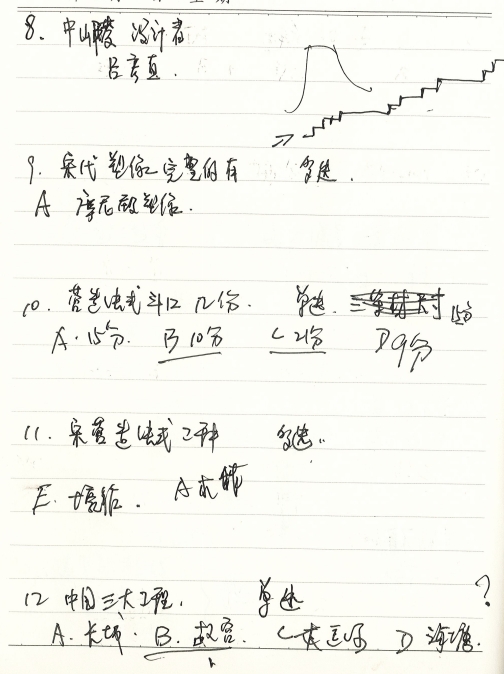 8. 中山陵 设计者
吕彦直.
9. 宋代塑像完整的有 多选.
A 摩尼殿塑像.
10. 营造法式斗口几份. 单选. 15分
A. 15分. B 10分 C 21分 D 9分
11. 宋营造法式工种 多选..
E. 墙作. A 大木作
12 中国三大工程. 单选 ?
A. 长城. B. 故宫. C 大运河 D 海塘.